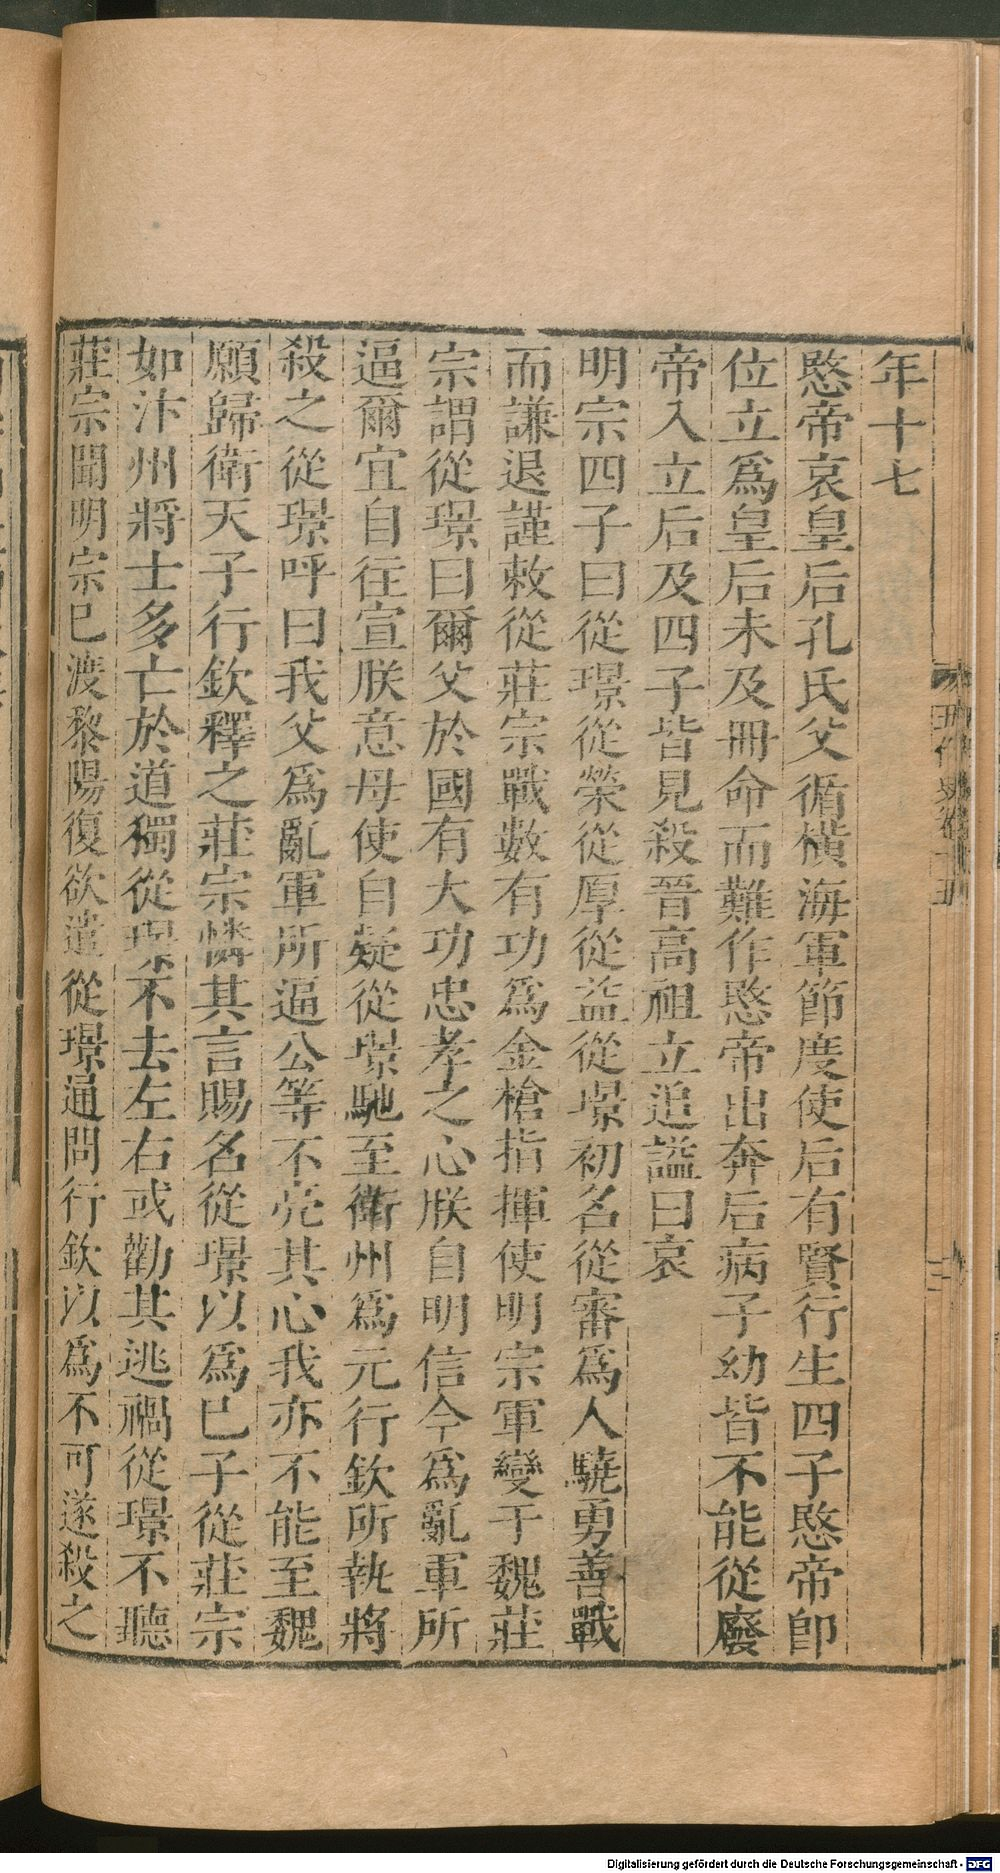 年十七
愍帝哀皇后孔氏父循橫海軍節度使后有賢行生四子愍帝卽
位立爲皇后未及冊命而難作愍帝出奔后病子幼皆不能從廢
帝入立后及四子皆見殺晉高祖立追謚曰哀
明宗四子曰從璟從榮從厚從益從璟初名從審爲人驍勇善戰
而謙退謹敕從莊宗戰數有功爲金槍指揮使明宗軍變于魏莊
宗謂從璟曰爾父於國有大功忠孝之心朕自明信今爲亂軍所
逼爾宜自往宣朕意毋使自疑從璟馳至衛州爲元行欽所執將
殺之從璟呼曰我父爲亂軍所逼公等不亮其心我亦不能至魏
願歸衛天子行欽釋之莊宗憐其言賜名從璟以爲已子從莊宗
如汴州將士多亡於道獨從璟不去左右或勸其逃禍從璟不聽
莊宗聞明宗已渡黎陽復欲遣從璟通問行欽以爲不可遂殺之
五代史卷十五
Digitalisierung gefördert durch die Deutsche Forschungsgemeinschaft - DFG